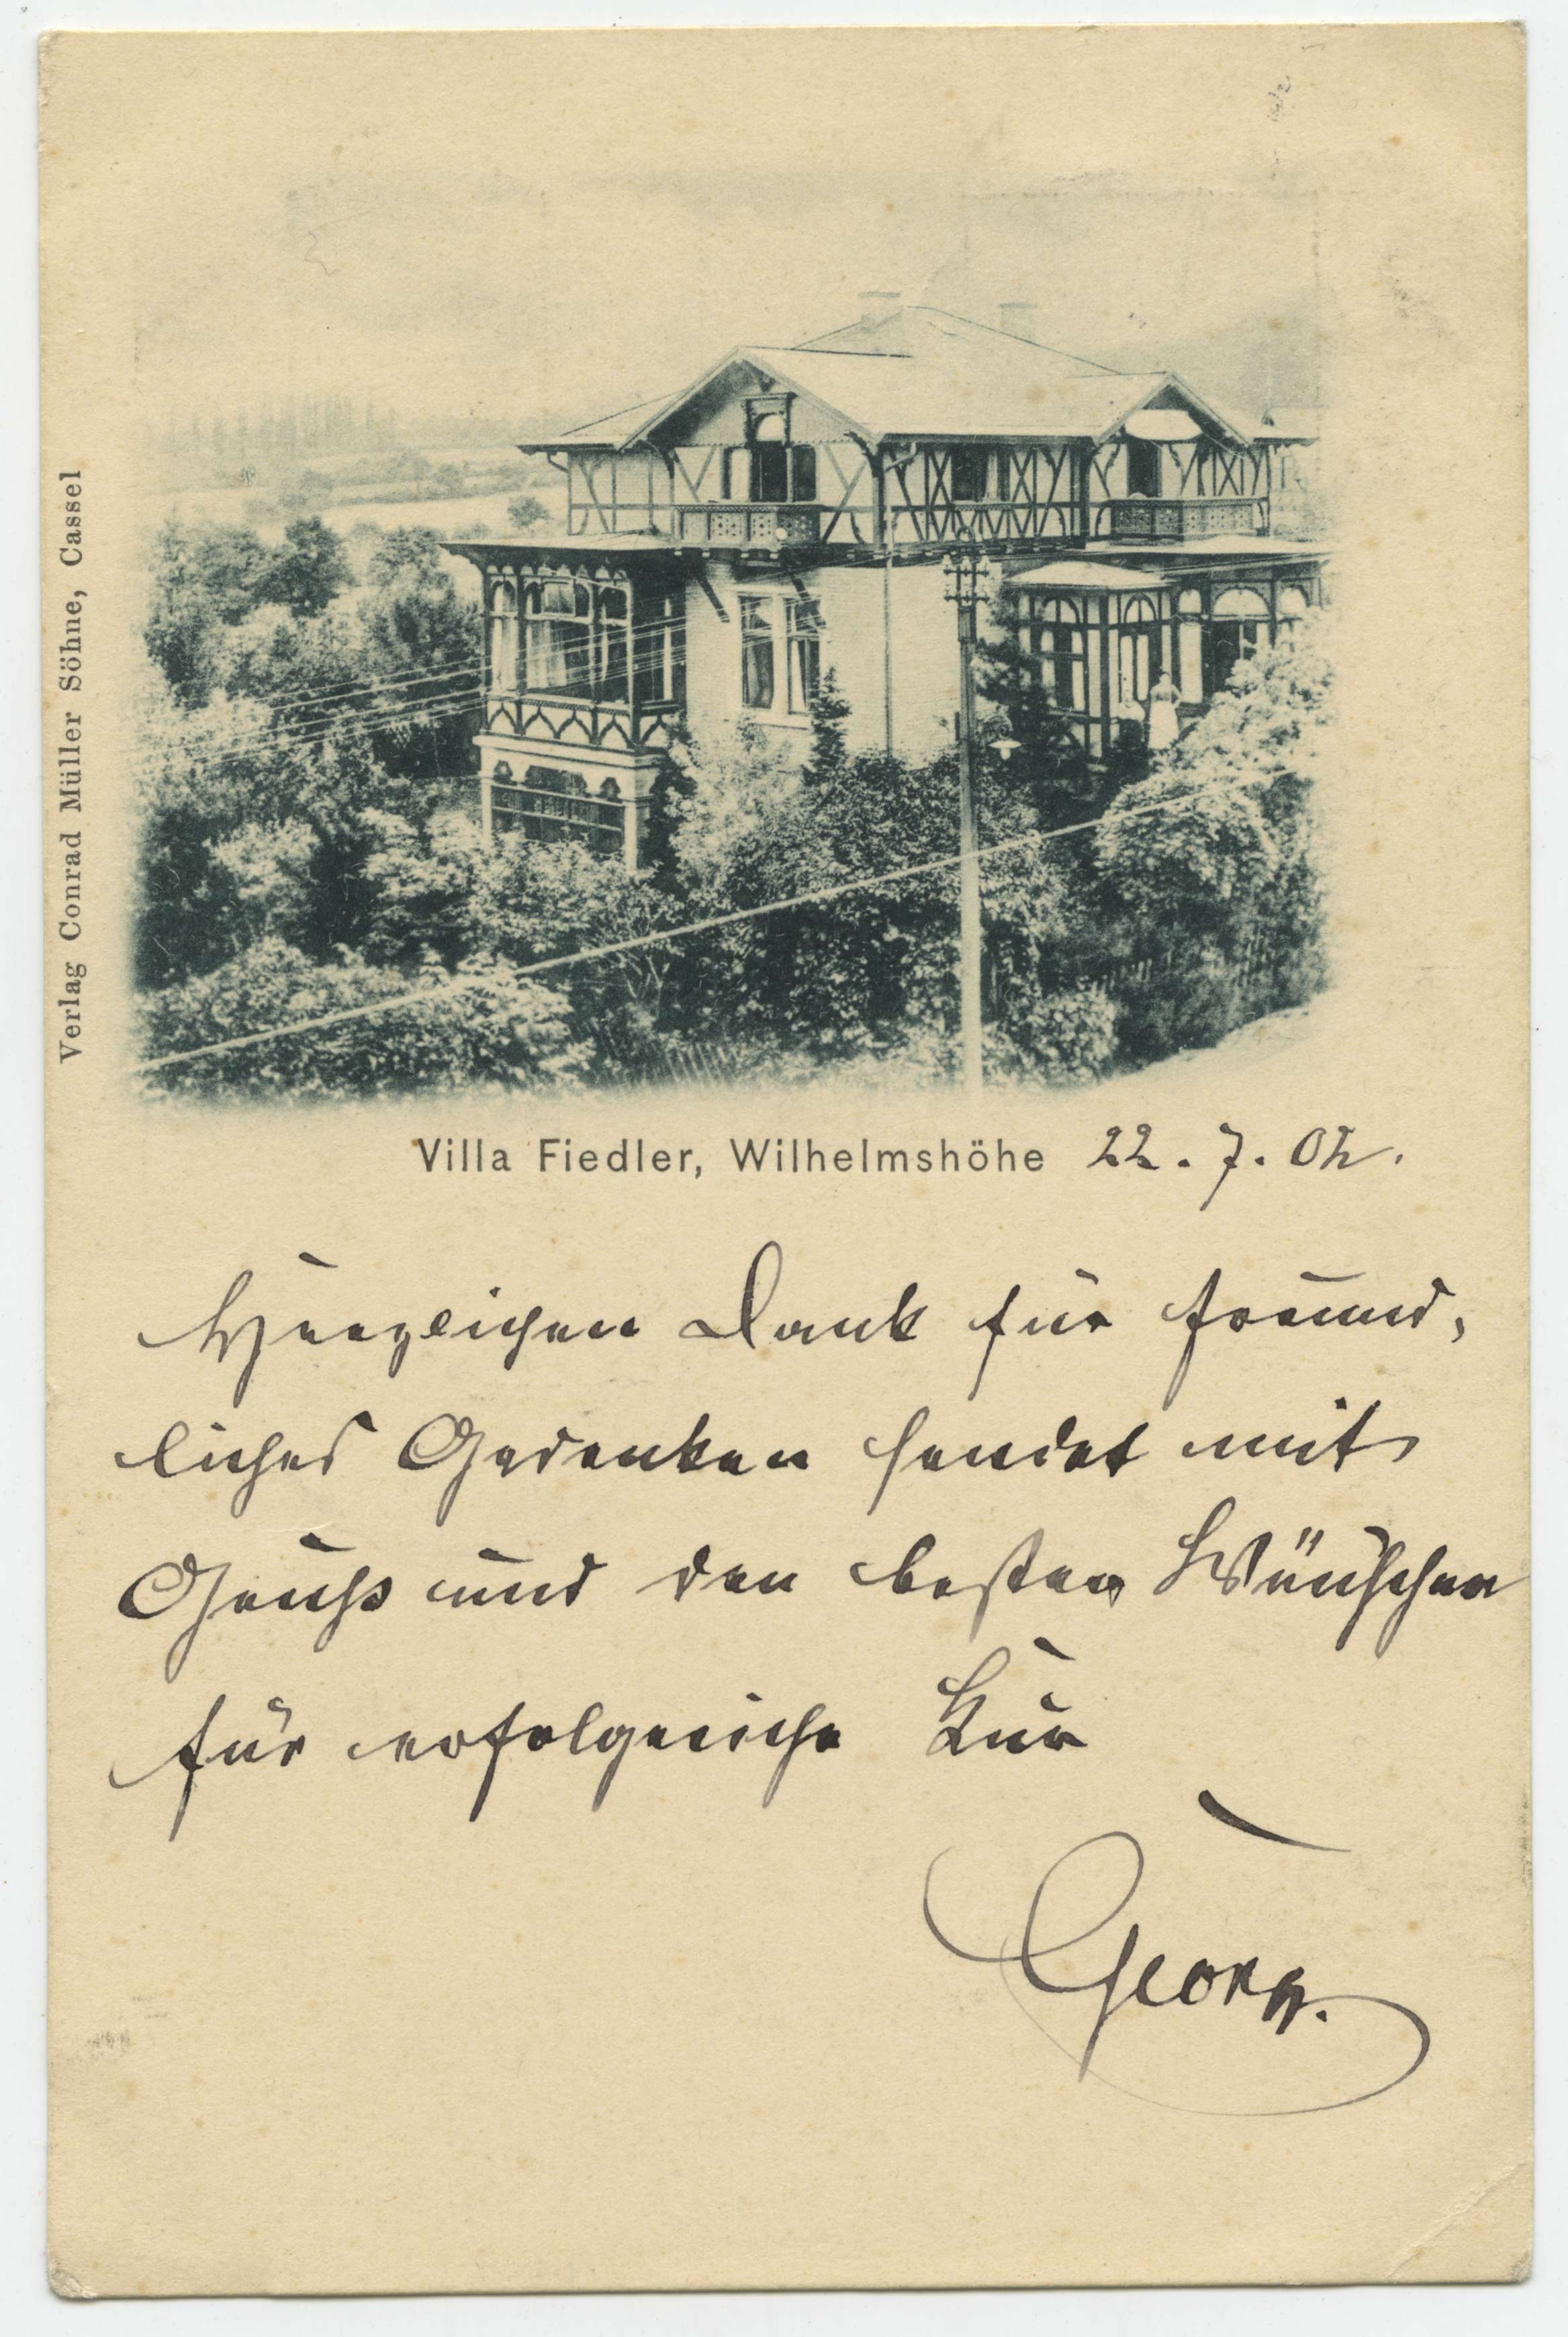 Verlag Conrad Müller Söhne, Cassel
Villa Fiedler, Wilhelmshöhe 22. 7. 02.
Herzlichen Dank für freund,
liches Gedenken sendet mit
Gruß und den besten Wünschen
für erfolgreiche Kur
Georg.